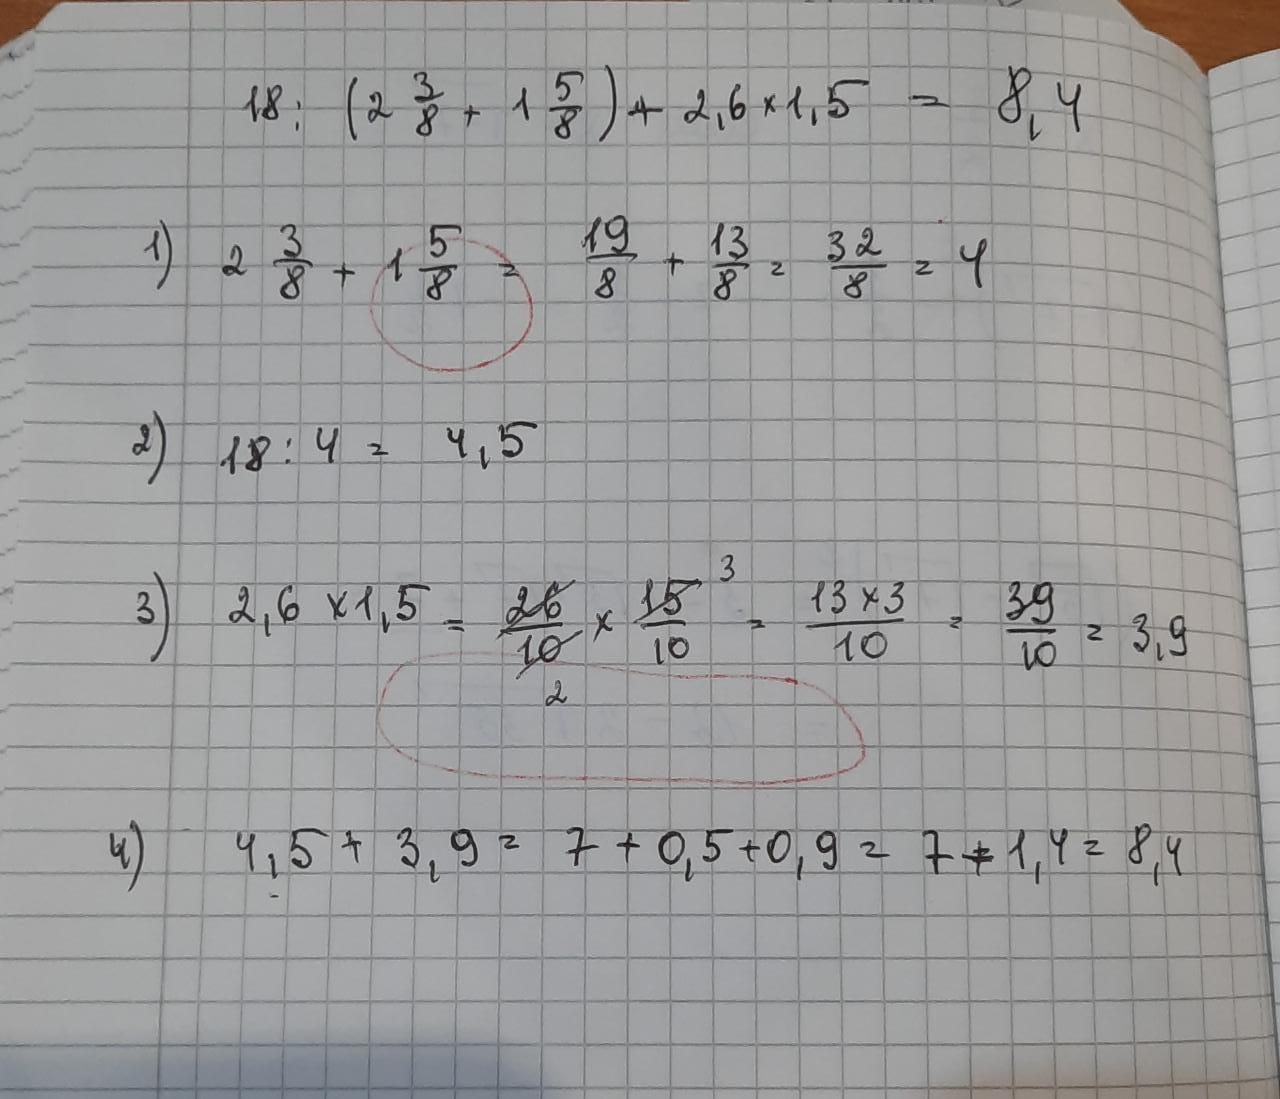 18 : (2 3/8 + 1 5/8) + 2,6 × 1,5 = 8,4
1) 2 3/8 + 1 5/8 = 19/8 + 13/8 = 32/8 = 4
2) 18 : 4 = 4,5
3) 2,6 × 1,5 = 26/10 × 15/10 = 13×3/10 = 39/10 = 3,9
3
2
4) 4,5 + 3,9 = 7 + 0,5 + 0,9 = 7 + 1,4 = 8,4